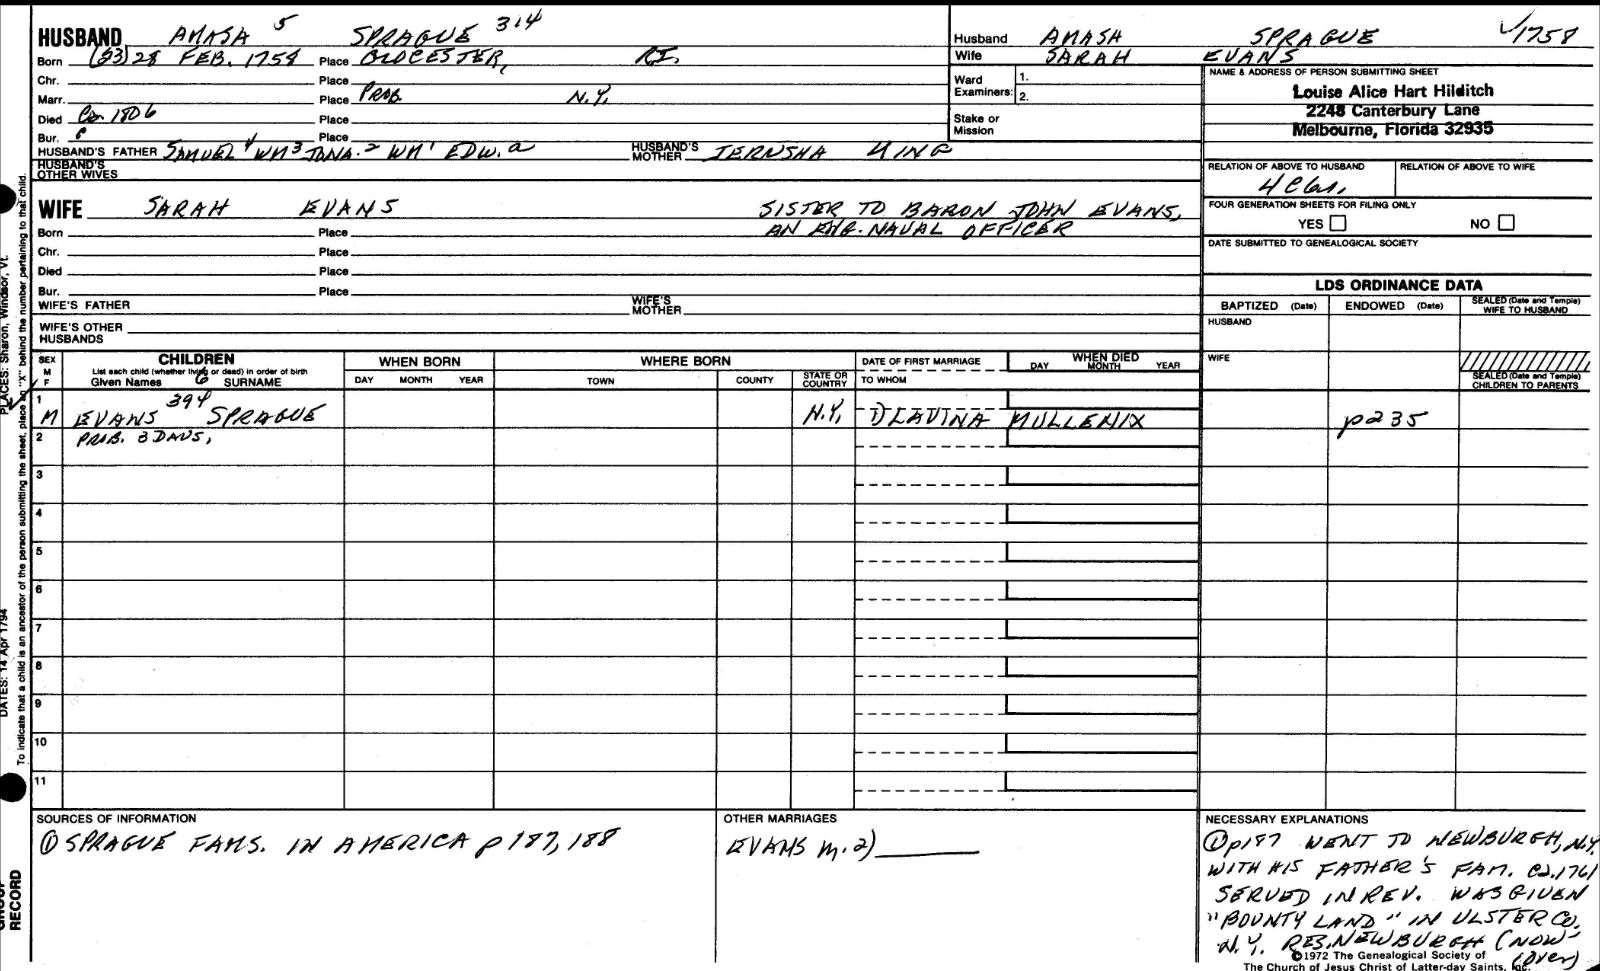 HUSBAND AMASA 5 SPRAGUE 314
Born (23) 28 FEB. 1758 Place GLOCESTER, R.I.
Chr. Place
Marr. Place PROB. N.Y.
Died Ca 1806 Place
Bur. Place
HUSBAND'S FATHER SAMUEL 4 WM 3 JONA. 2 WM 1 EDW. a HUSBAND'S MOTHER JERUSHA KING
HUSBAND'S OTHER WIVES
Husband AMASA SPRAGUE √1758
Wife SARAH EVANS
Ward Examiners: 1.
2.
Stake or Mission
NAME & ADDRESS OF PERSON SUBMITTING SHEET
Louise Alice Hart Hilditch
2248 Canterbury Lane
Melbourne, Florida 32935
RELATION OF ABOVE TO HUSBAND RELATION OF ABOVE TO WIFE
FOUR GENERATION SHEETS FOR FILING ONLY
YES NO
DATE SUBMITTED TO GENEALOGICAL SOCIETY
WIFE SARAH EVANS SISTER TO BARON JOHN EVANS,
AN ENG. NAVAL OFFICER
Born Place
Chr. Place
Died Place
Bur. Place
WIFE'S FATHER WIFE'S MOTHER
WIFE'S OTHER HUSBANDS
LDS ORDINANCE DATA
BAPTIZED (Date) ENDOWED (Date) SEALED (Date and Temple) WIFE TO HUSBAND
HUSBAND
WIFE
SEALED (Date and Temple) CHILDREN TO PARENTS
SEX M F
CHILDREN
List each child (whether living or dead) in order of birth
Given Names SURNAME
WHEN BORN
DAY MONTH YEAR
WHERE BORN
TOWN COUNTY STATE OR COUNTRY
DATE OF FIRST MARRIAGE
TO WHOM
WHEN DIED
DAY MONTH YEAR
1 M EVANS 394 SPRAGUE N.Y. DLAVINA MULLENIX p235
2 PROB. 3 DAUS,
3
4
5
6
7
8
9
10
11
SOURCES OF INFORMATION
① SPRAGUE FAMS. IN AMERICA p 187, 188
OTHER MARRIAGES
EVANS m. 2)
NECESSARY EXPLANATIONS
① p187 WENT TO NEWBURGH, N.Y.
WITH HIS FATHER'S FAM. ca. 1761
SERVED IN REV. WAS GIVEN
"BOUNTY LAND" IN ULSTER CO.
N.Y. RES. NEWBURGH (NOW
(over)
©1972 The Genealogical Society of
The Church of Jesus Christ of Latter-day Saints, Inc.
PLACES: Sharon, Windsor, Vt.
DATES: 14 Apr 1794
To indicate that a child is an ancestor of the person submitting the sheet, place an "X" behind the number pertaining to that child.
RECORD